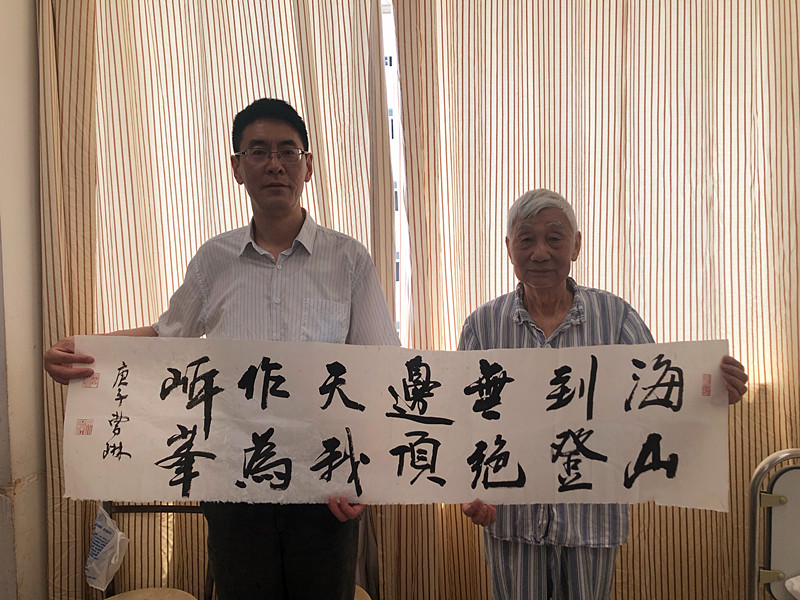 海到無邊天作岸
山登絕頂我為峯
庚子琳